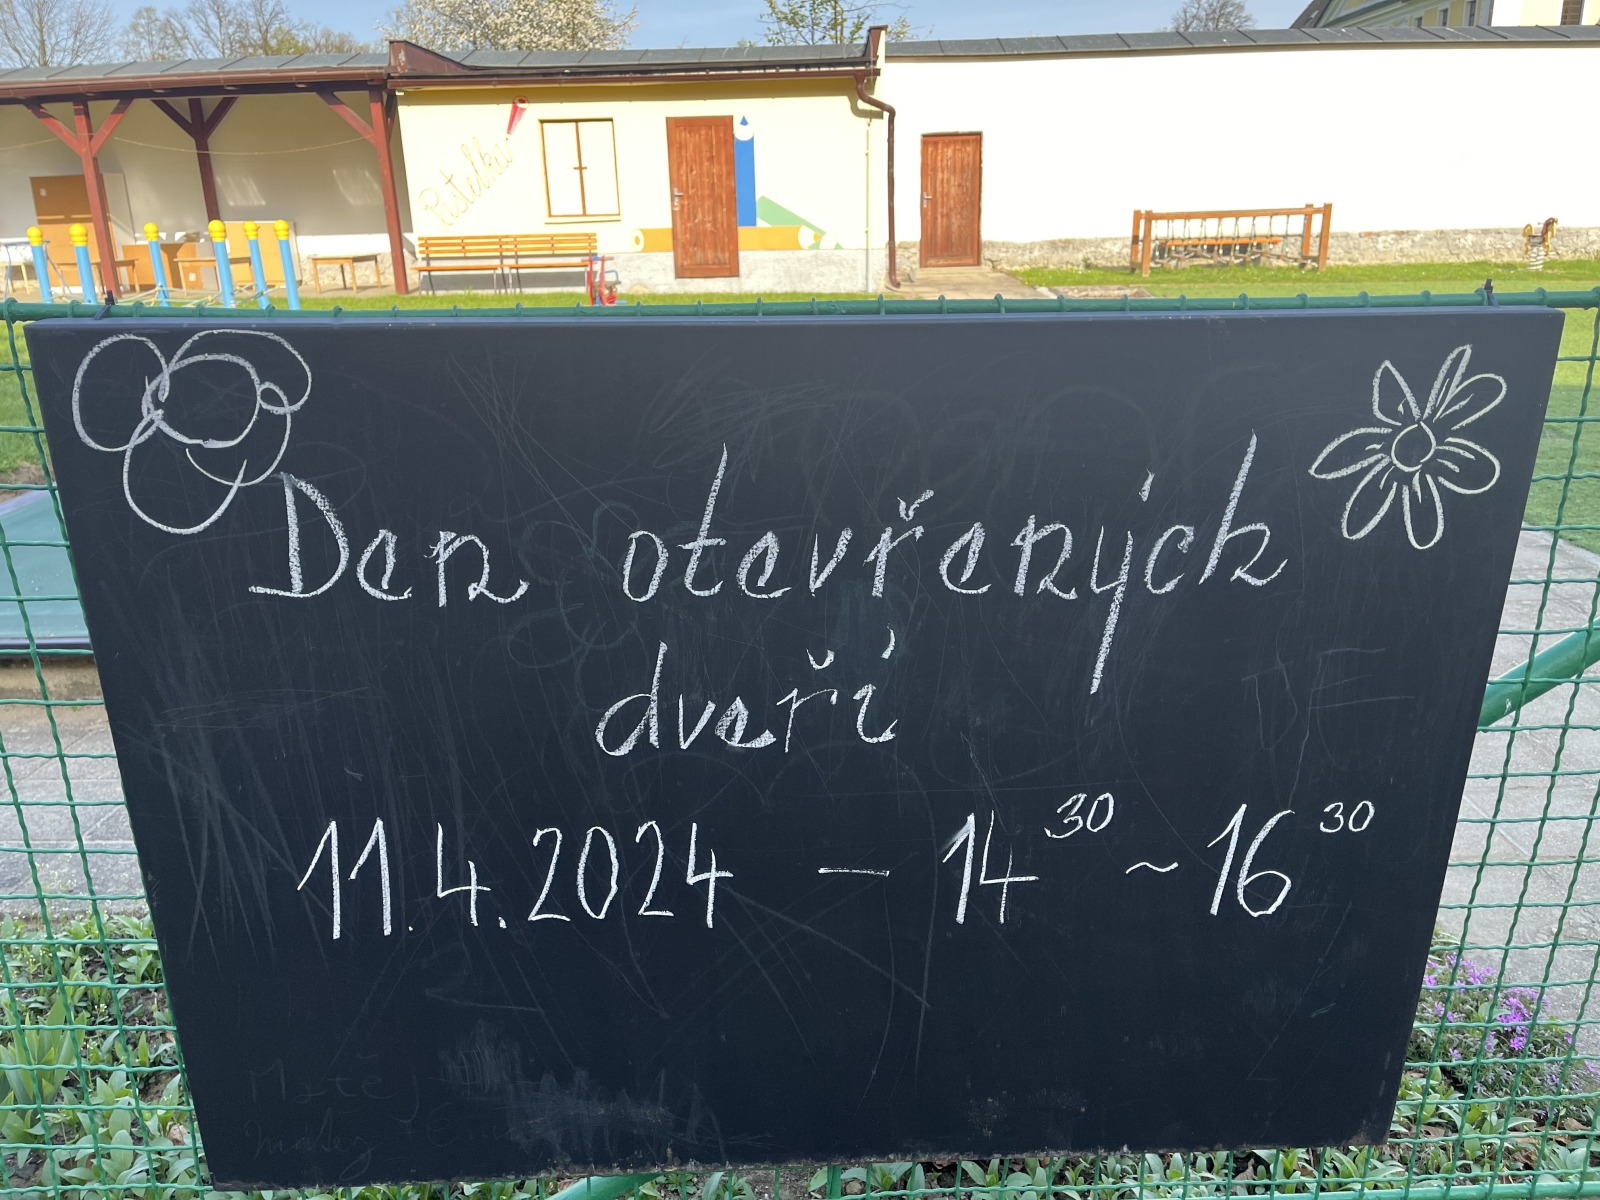 Pastelka
Den otevřených
dveří
11.4.2024 – 14³⁰ ~ 16³⁰
Matěj